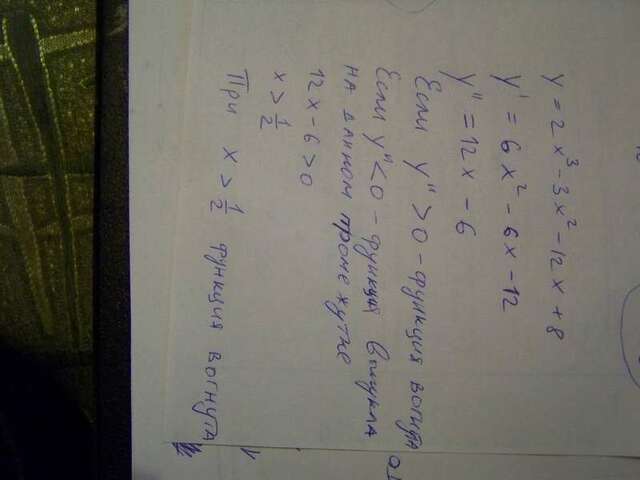 y = 2x³ - 3x² - 12x + 8
y' = 6x² - 6x - 12
y'' = 12x - 6
Если y'' > 0 - функция вогнута
Если y'' < 0 - функция выпукла
на данном промежутке
12x - 6 > 0
x > 1/2
При x > 1/2 функция вогнута